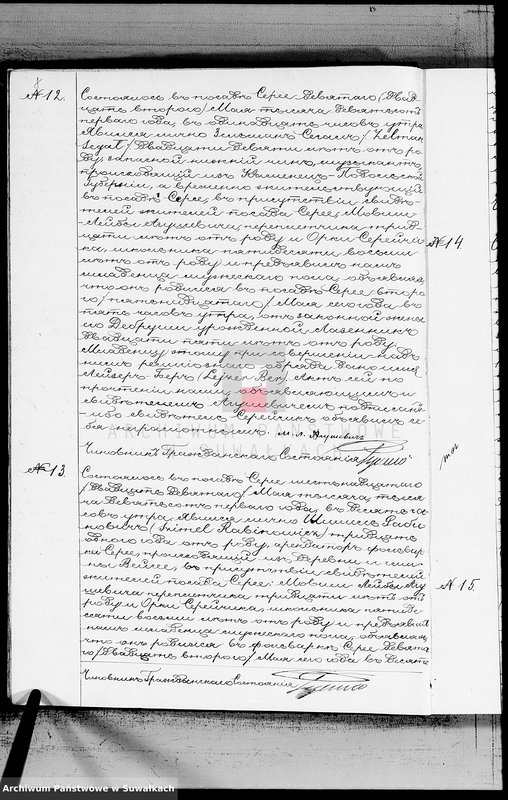 № 12.
Состоялось въ посадѣ Серее девятаго /двад-
цать второго/ Мая тысяча девятьсотъ
перваго года, въ одиннадцать часовъ утра.
Явился лично Зельманъ Сегалъ /Zelman
Segal/ двадцати девяти лѣтъ отъ ро-
ду, запасной нижній чинъ, музыкантъ,
происходящій изъ Каменецъ-Подольской
Губерніи, а временно жительствующій
въ посадѣ Серее, въ присутствіи свидѣ-
телей жителей посада Серее, Мовши-
-Лейбы Анушевича переплетчика трид-
цати лѣтъ отъ роду и Орки Серейчи-
ка, школьника пятидесяти восьми
лѣтъ отъ роду и предъявилъ намъ
младенца мужескаго пола, объявляя,
что онъ родился въ посадѣ Серее второ-
го /пятнадцатаго/ Мая сего года въ
пять часовъ утра, отъ законной жены
его Добруши урожденной Лазенникъ
двадцати пяти лѣтъ отъ роду.
Младенцу этому при совершеніи
религіознаго обряда дано имя
Лейзеръ-Беръ /Lejzer Ber/. Актъ сей по
прочтеніи нами, объявляющимъ и
свидѣтелемъ Анушевичемъ подписанъ
ибо свидѣтель Серейчикъ объявилъ се-
бя неграмотнымъ. М. Л. Анушевичъ
Чиновникъ Гражданскаго Состоянія
№ 13.
Состоялось въ посадѣ Серее шестнадцатаго
/двадцать девятаго/ Мая тысяча
девятьсотъ перваго года, въ десять ча-
совъ утра. Явился лично Шимель Раби-
новичъ /Szimel Rabinowicz/ тридцати
одного года отъ роду, арендаторъ фольвар-
ка Серее, происходящій изъ деревни и гми-
ны Вейсее, въ присутствіи свидѣтелей
жителей посада Серее: Мовши Лейбы Ану-
шевича переплетчика тридцати лѣтъ отъ
роду и Орки Серейчика, школьника пятиде-
сяти восьми лѣтъ отъ роду и предъявилъ
намъ младенца мужескаго пола, объявляя,
что онъ родился въ фольваркѣ Серее девята-
го /двадцать второго/ Мая сего года въ десять
Чиновникъ Гражданскаго Состоянія
№ 14
№ 15.
Archiwum Państwowe w Suwałkach